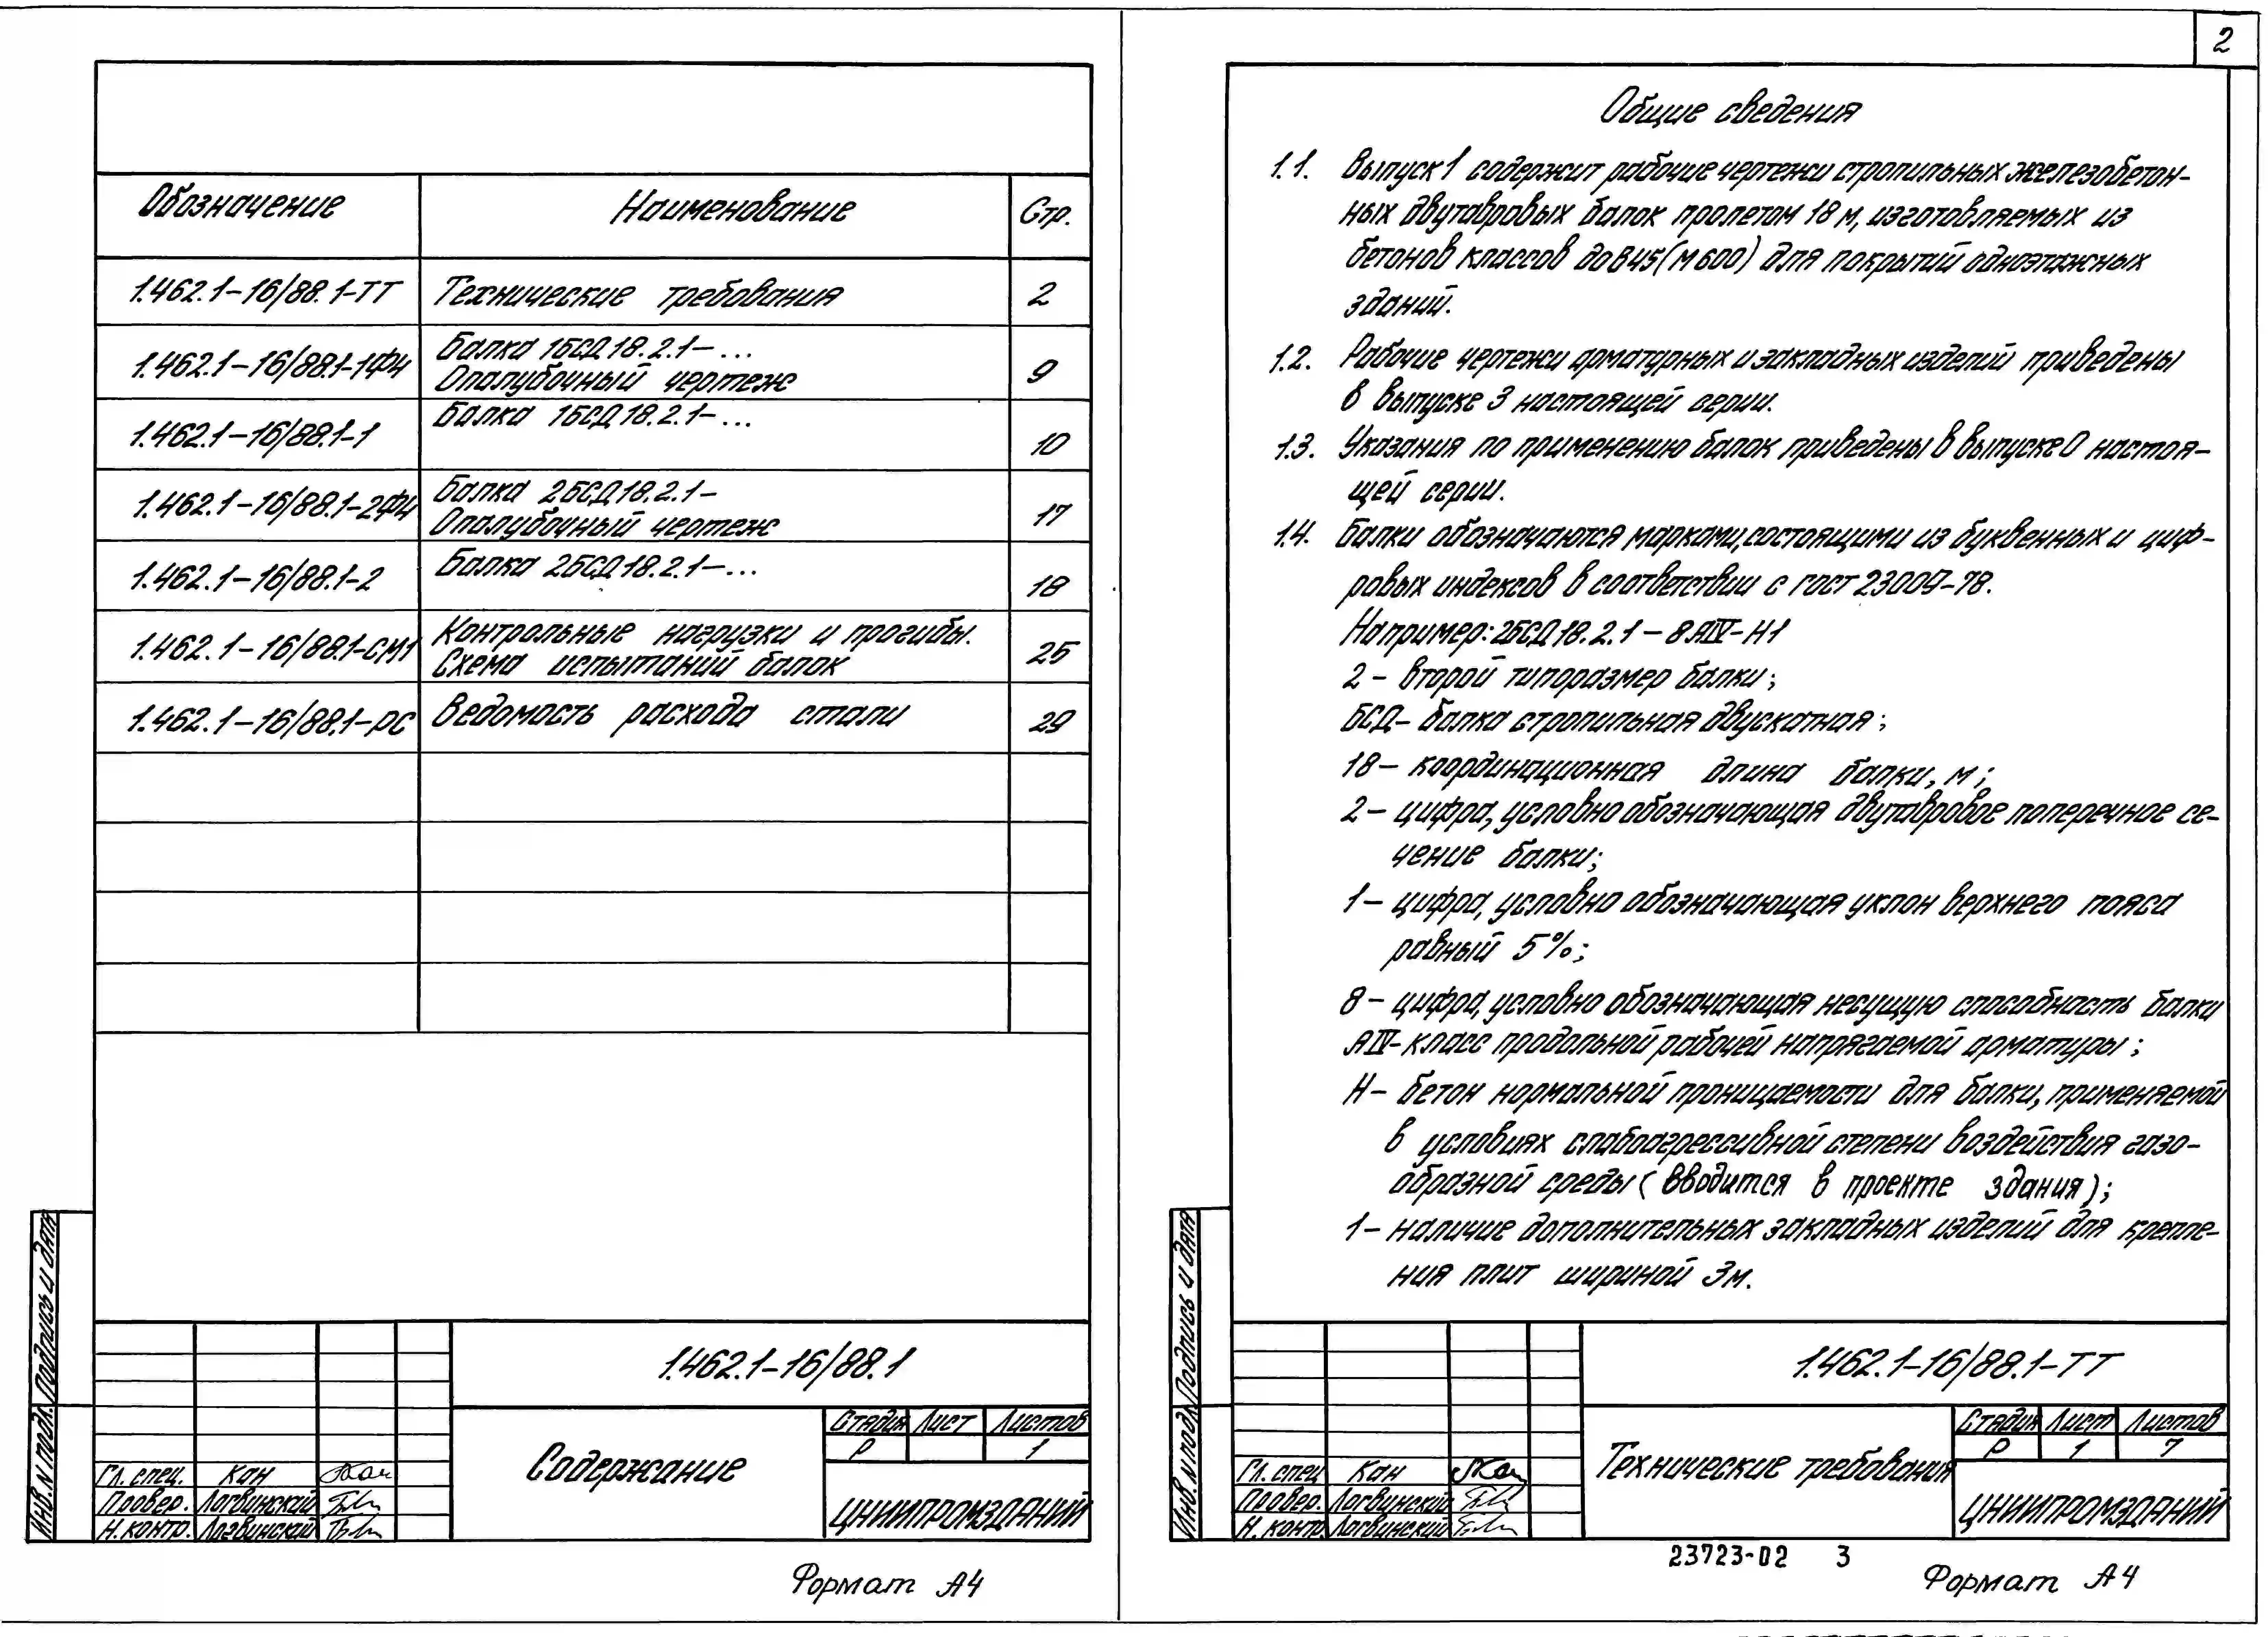 Обозначение Наименование Стр.
1.462.1-16/88.1-ТТ Технические требования 2
1.462.1-16/88.1-1ФЧ Балка 1БСД18.2.1-...
Опалубочный чертеж 9
1.462.1-16/88.1-1 Балка 1БСД18.2.1-... 10
1.462.1-16/88.1-2ФЧ Балка 2БСД18.2.1-
Опалубочный чертеж 17
1.462.1-16/88.1-2 Балка 2БСД18.2.1-... 18
1.462.1-16/88.1-СМ1 Контрольные нагрузки и прогибы.
Схема испытаний балок 25
1.462.1-16/88.1-РС Ведомость расхода стали 29
Инв.N подл. Подпись и дата
1.462.1-16/88.1
Содержание
Стадия Лист Листов
Р 1
ЦНИИПРОМЗДАНИЙ
Гл. спец. Кан
Провер. Логвинский
Н. контр. Логвинский
Формат А4
2
Общие сведения
1.1. Выпуск 1 содержит рабочие чертежи стропильных железобетон-
ных двутавровых балок пролетом 18 м, изготовляемых из
бетонов классов до В45 (М600) для покрытий одноэтажных
зданий.
1.2. Рабочие чертежи арматурных и закладных изделий приведены
в выпуске 3 настоящей серии.
1.3. Указания по применению балок приведены в выпуске 0 настоя-
щей серии.
1.4. Балки обозначаются марками, состоящими из буквенных и циф-
ровых индексов в соответствии с ГОСТ 23009-78.
Например: 2БСД18.2.1-8АIV-Н1
2 - второй типоразмер балки;
БСД- балка стропильная двускатная;
18 - координационная длина балки, м;
2 - цифра, условно обозначающая двутавровое поперечное се-
чение балки;
1 - цифра, условно обозначающая уклон верхнего пояса
равный 5%;
8 - цифра, условно обозначающая несущую способность балки
АIV- класс продольной рабочей напрягаемой арматуры;
Н - бетон нормальной проницаемости для балки, применяемой
в условиях слабоагрессивной степени воздействия газо-
образной среды (вводится в проекте здания);
1 - наличие дополнительных закладных изделий для крепле-
ния плит шириной 3м.
Инв.N подл. Подпись и дата
1.462.1-16/88.1-ТТ
Технические требования
Стадия Лист Листов
Р 1 7
ЦНИИПРОМЗДАНИЙ
Гл. спец Кан
Провер. Логвинский
Н. контр Логвинский
23723-02 3
Формат А4